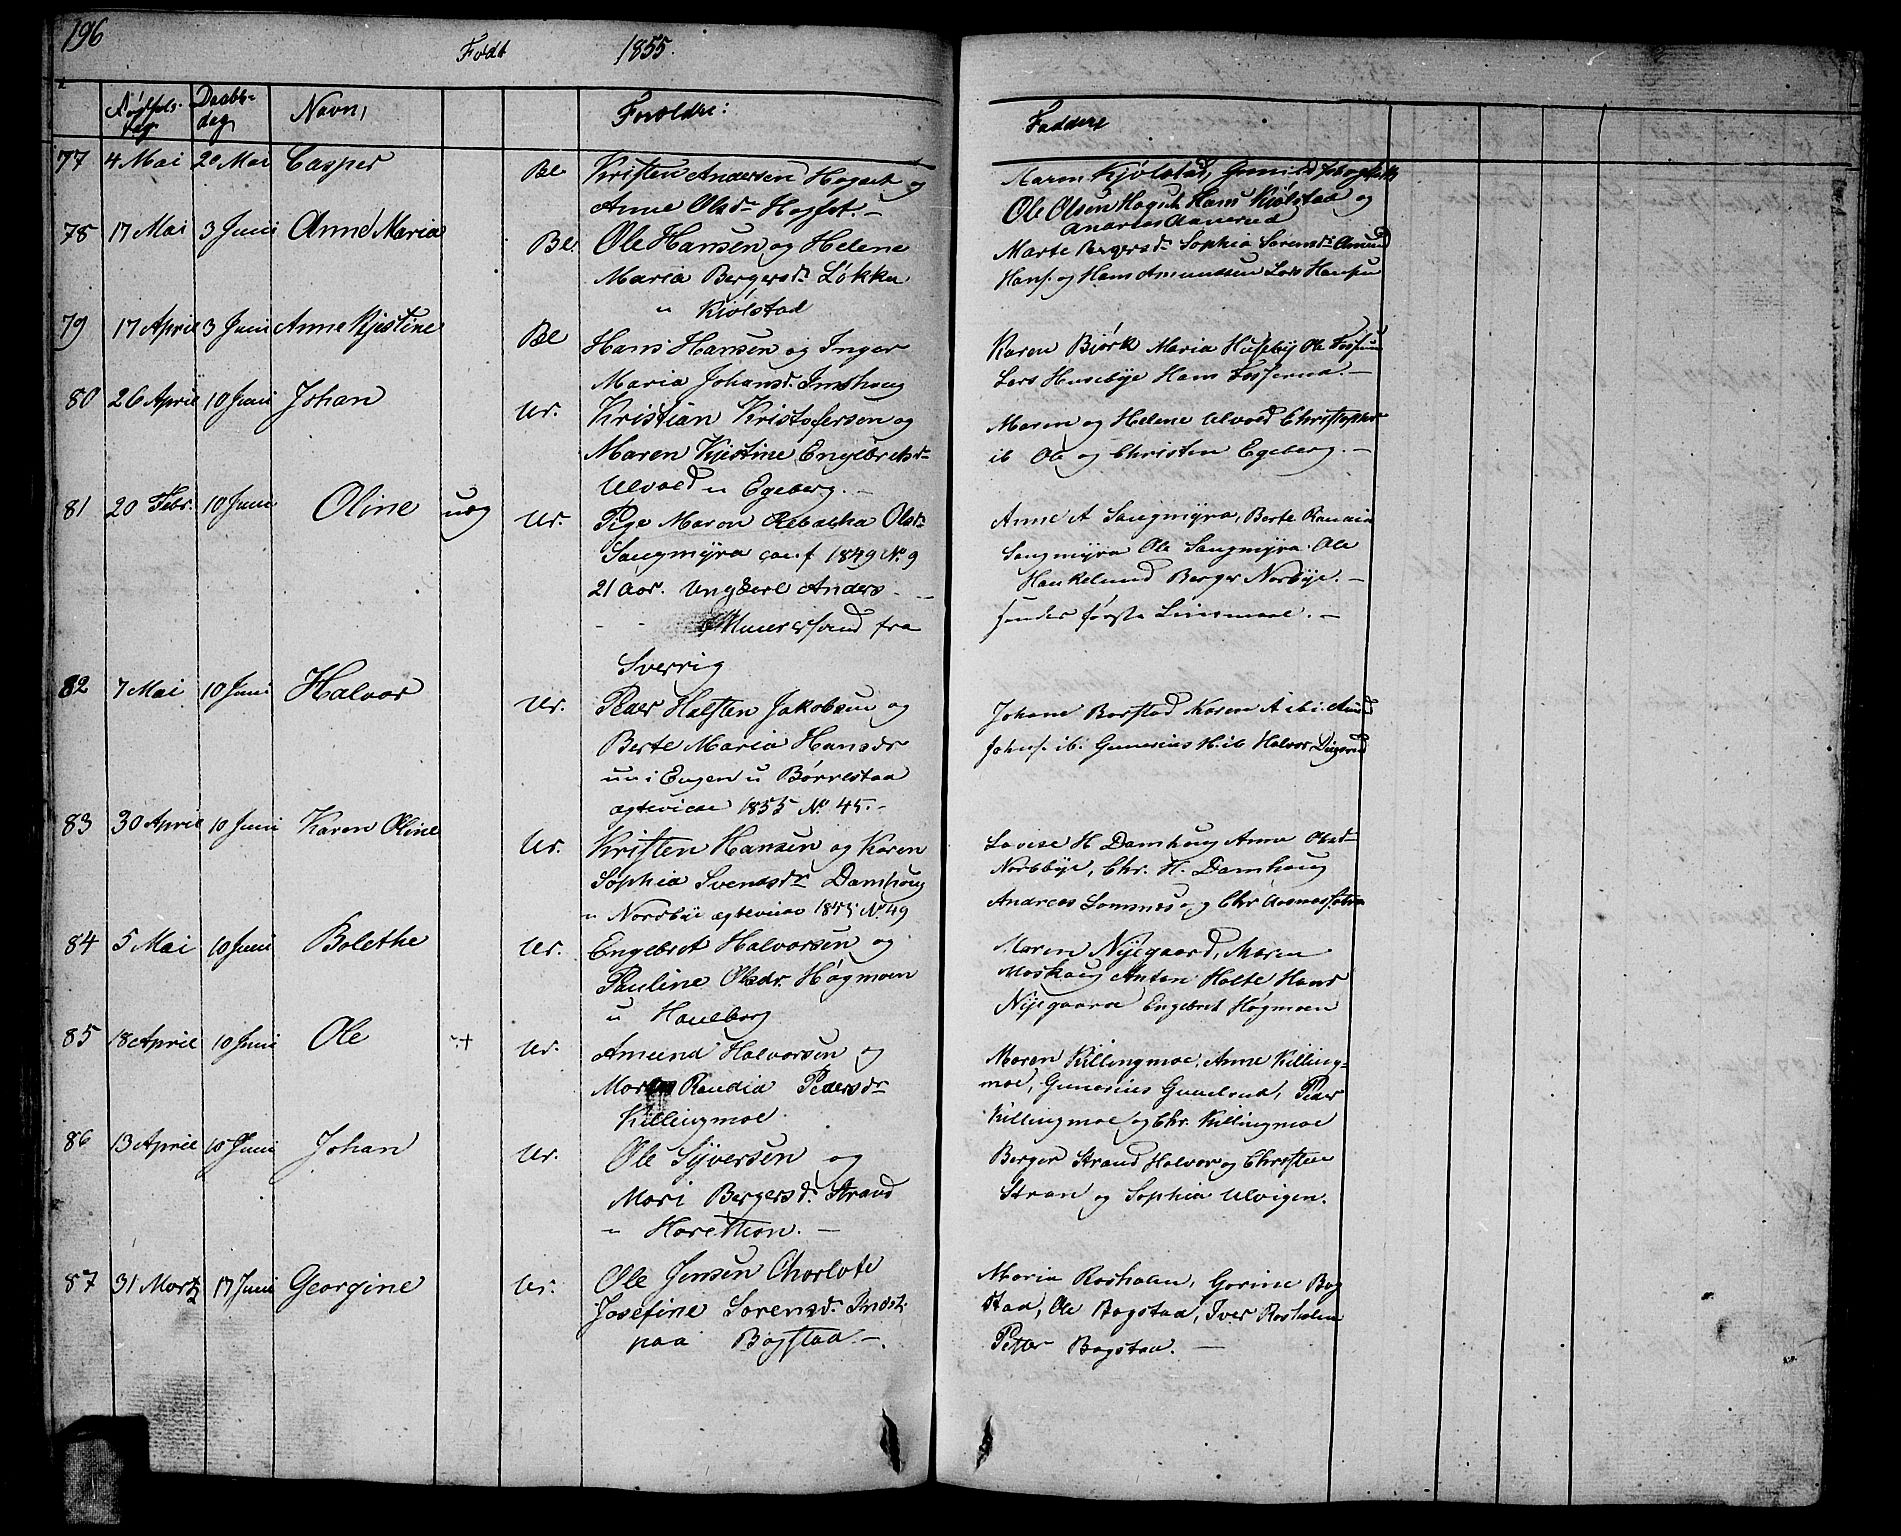 196
Født 1855.
Fødsels- dag Daabs- dag Navn, Forældre: Faddere
77 4 Mai 20 Mai Casper Bl Kristen Andersen Hogset og
Anne Olsdr Hogset.-
Maren Kjólstad, Gunild
Ole Olsen Hogset Hans Kjólstad og
Andreas Aanerud
78 17 Mai 3 Juni Anne Maria Bl Ole Hansen og Helene
Maria Bergersdr Løkka
u Kjólstad
Marte Bergersdr Sophia Sørensdr Amund
Hans. og Hans Amundsen Lars Hansen
79 17 April 3 Juni Anne Kjestine Bl Hans Hansen og Inger
Maria Johansd. Imshaug
Karen Bjórk Maria Huseby Ole Fosserud
Lars Husebye Hans Fosserud.-
80 26 April 10 Juni Johan Ur. Kristian Kristofersen og
Maren Kjestine Engebretsdr
Ulvold u Egeberg.-
Maren og Helene Ulvold Christopher
ib Ole og Christen Egeberg.-
81 20 Febr. 10 Juni Oline uæg Ur. Pige Maren Rebækka Olsdr
Saugmyra conf 1849 No. 9
21 Aar. Ungkarl Anders
fra
Sverrig
Anne A Saugmyra, Berte Randia
Saugmyra Ole Saugmyra. Ole
Haukelund Berger Norbye.-
hendes første Leiermaal.-
82 7 Mai 10 Juni Halvor Ur. Peder Halsten Jakobsen og
Berte Maria Hansdr
un i Engen u Børrestad
ægteviede 1855 No. 45.-
Johane Borstad Karen A ib. Amund
Johns. ib. Gunerius H. ib Halvor Digerud
83 30 April 10 Juni Karen Oline Ur. Kristen Hansen og Karen
Sophia Svendsdr Damhaug
u Nordbye ægteviede 1855 No. 49
Lovise H Damhaug Anne Olsdr
Nordbye, Chr. H. Damhaug
Andreas Lomnes og Chr Aasnessætra
84 5 Mai 10 Juni Bolethe Ur. Engebret Halvorsen og
Pauline Olsdr. Høgmoen
u Haulborg
Maren Nyegaard, Maren
Moshaug Anton Holte Hans
Nyegaard Engebret Høgmoen
85 18 April 10 Juni Ole + Ur. Amund Halvorsen og
Maren Randia Pedersdr
Killingmoe.
Maren Killingmoe, Anne Killing-
moe, Gunerius Gundsrud, Peder
Killingmoe og Chr. Killingmoe
86 13 April 10 Juni Johan Ur. Ole Syversen og
Mari Bergersd. Strand
u Horethon.-
Berger Strand Halvor og Christen
Stran og Sophia Ulvigen.
87 31 Martz 17 Juni Georgine Ur. Ole Jensen Charlote
Josefine Sørensd. Indst.
paa Bogstad.-
Maria Rosholen, Gorine Bog
stad, Ole Bogstad, Iver Rosholen
Petter Bogstad.-